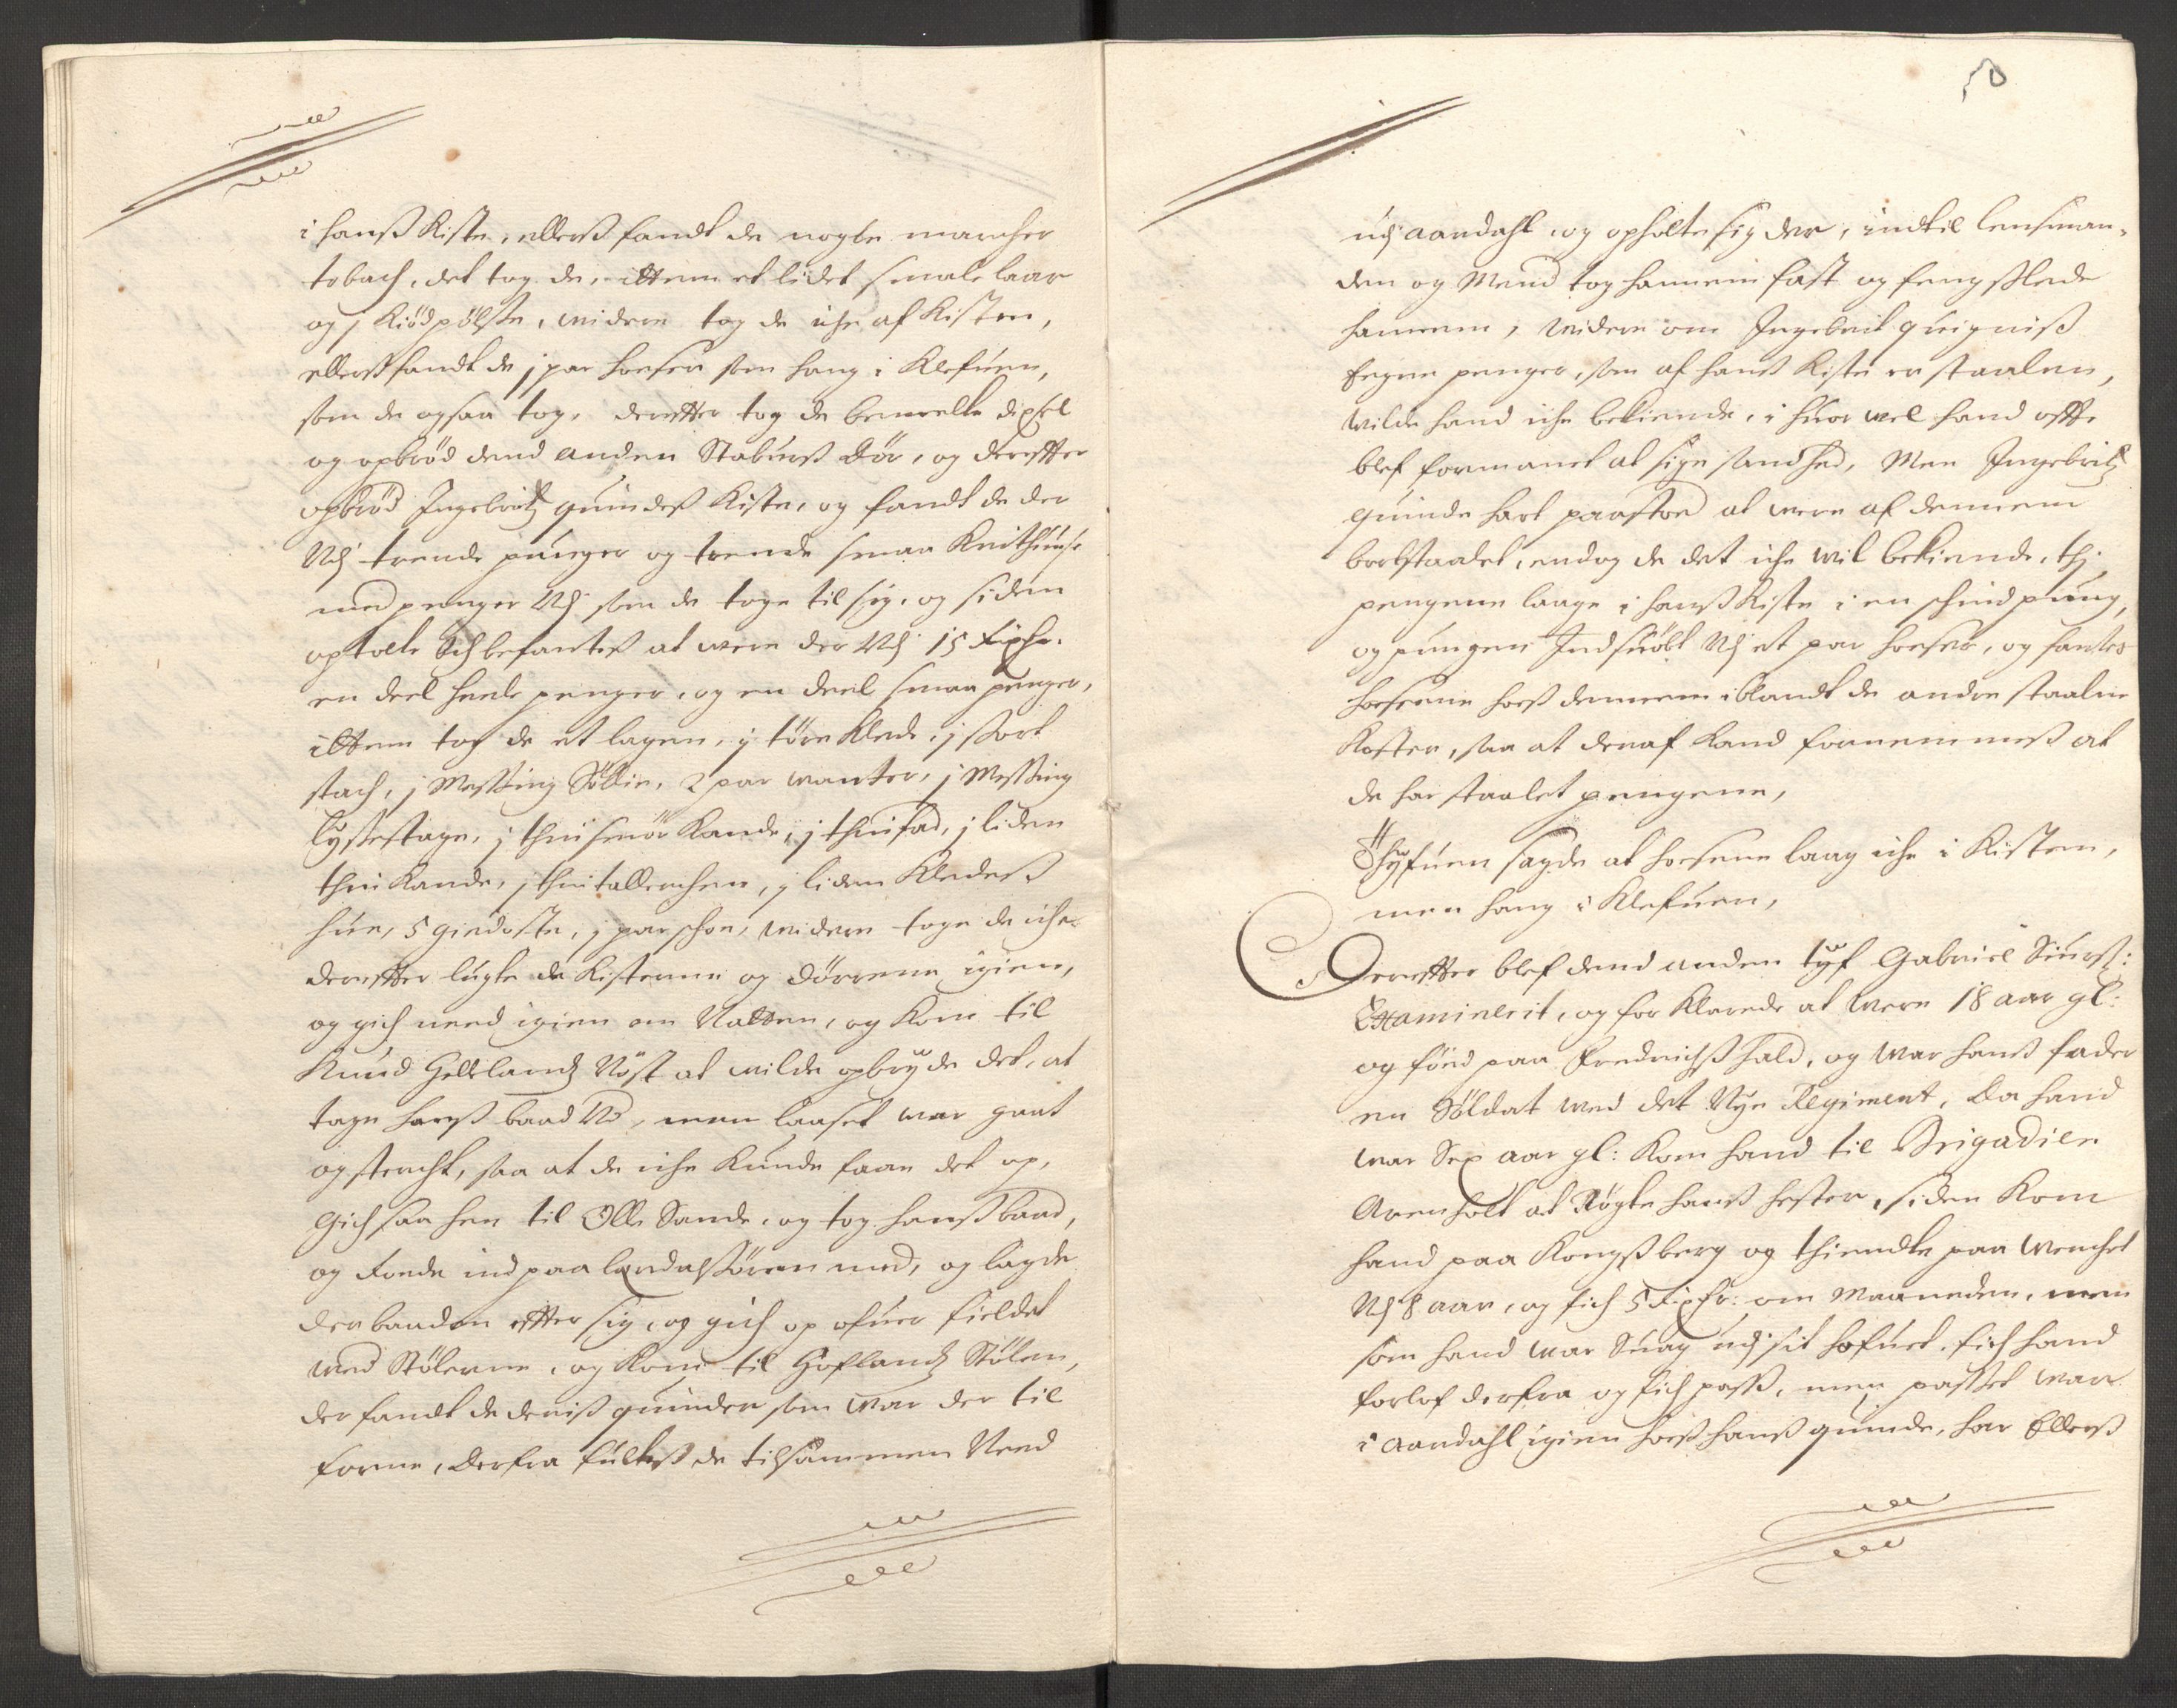 i hanß Kiste, ellerß fandt de nogle marcher
tobach, det tog de, ittem et lidet smale laar
og j Kiødpølse, widere tog de iche af Kisten,
ellerß fandt de j par hoser som hang i Klefuen,
som de ogsaa tog, derefter tog de bemelte dixsel
og opbrød dend anden Staburß dør, og derefter
opbrød Ingebritz quindeß Kiste, og fandt de der
Udj trende punger og trende smaa
med penger Udj som de toge til sig, og siden
optolte och befanteß at were der Udj 15 Rixdr.
en deel heele penger, og en deel smaa penger,
ittem tog de et lagen, j tørre Klæde, j skort
stach, j Messing Sølie, 2 par wanter, j Messing
lyßestage, j thin smør Kande, j thinfad, j liden
thin Kande, j thintallerchen, j liden Kledeß
hue, 5 giedoste, j par schoe, widere toge de iche
derefter lugte de Kisterne og dørrene igien,
og gich need igien om Natten, og Kom til
Knud Nøst at wilde opbryde det, at
tage hanß baad Ud, men laaset war gaat
og stercht, saa at de iche Kunde faae det op,
Gich saa hen til Olle Sande, og tog hanß baad,
og Roede ind paa landalßøren med, og lagde
der baaden efter sig, og gich op ofuer fieldet
med Stølerne, og Kom til Stølen,
der fandt de deriß quinder som war der til
forne, derfra fulteß de tilsammen Need
50
udj aardahl, og opholte sig der, indtil lensman-
den og Mend tog hannem fast og fengslede
hannem, widere om Ingebrit quigniß
Eegne penger, som af hanß Kiste er staalen,
wilde hand iche bekiende, i huor wel hand ofte
blef formanet at sige sandhed, Men Ingebritz
quinde hart paastod at were af dennem
bortstaalet, endog de det iche wil bekiende, thj
pengene laage i hanß Kiste i en schindpung,
og pungen Indsuøbt Udj et par hoser, og fantes
hoserne hoß dennem iblandt de andre staalne
Koster, saa at deraf Kand fornemmeß at
de har staalet pengene,
Thyfuen sagde at hoserne laag iche i Kisten,
men hang i Klefuen,
Derefter blef dend anden tyf Gabriel Siurß:
Examinerit, og for Klarede at were 18 aar gl:
og fød paa Fredrichßhald, og war hanß fader
en Soldat wed det Nye Regiment, da hand
war Sex aar gl: Kom hand til Brigadier
Arenholt at Røgte hanß hester, siden Kom
hand paa Kongßberg og thiendte paa werchet
Udj 8 aar, og fich 5 Rixdr: om Maaneden, men
som hand war Suag udj sit hofuet, fich hand
forlof derfra og fich paß, men passet war
i aardahl igien hoß hanß quinde, har Ellerß